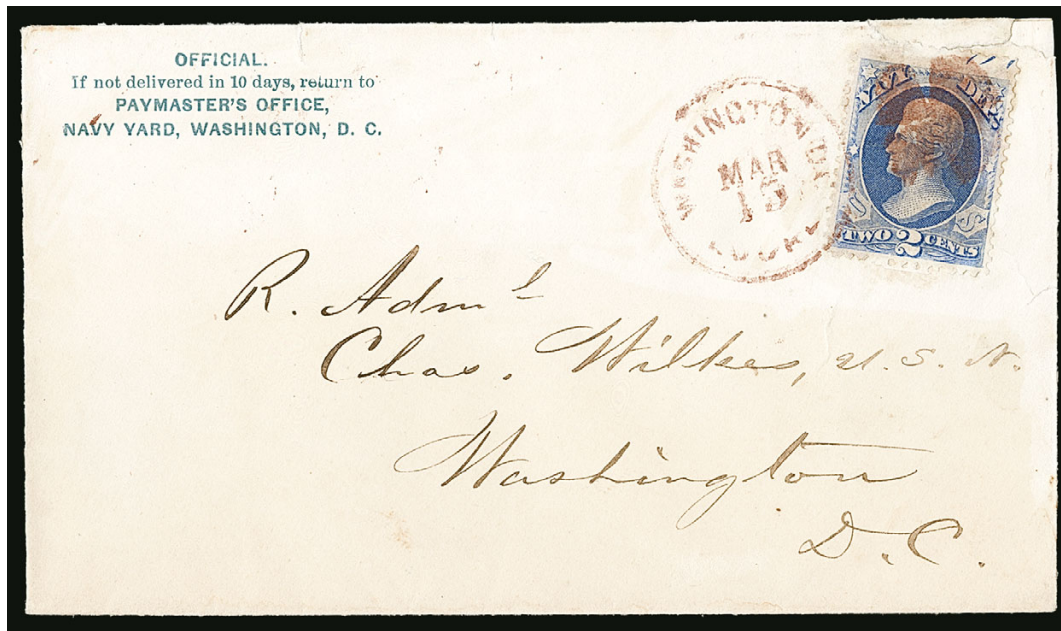 OFFICIAL.
If not delivered in 10 days, return to
PAYMASTER'S OFFICE,
NAVY YARD, WASHINGTON, D. C.
WASHINGTON D.C.
MAR
15
NAVY DEPT
U S
TWO 2 CENTS
R. Adml
Chas. Wilkes, U. S. N.
Washington
D. C.